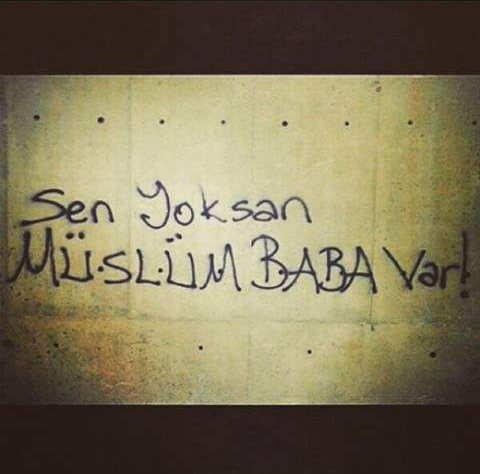 Sen Yoksan
MÜSLÜM BABA Var!